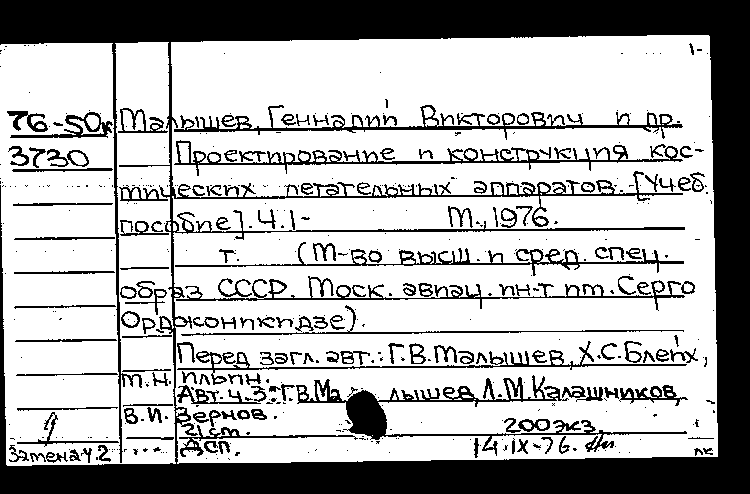 1-
76-50к Малышев, Геннадий Викторович и др.
3730 Проектирование и конструкция кос-
мических летательных аппаратов. [Учеб.
пособие]. Ч.1- М., 1976.
т. (М-во высш. и сред. спец.
образ СССР. Моск. авиац. ин-т им. Серго
Орджоникидзе).
Перед загл. авт.: Г.В. Малышев, Х.С. Блейх,
М.Н.
Авт. ч. 3: Г.В. Малышев, Л.М. Калашников,
В.И. Зернов.
21 см. 200 экз.
Замена ч.2 ... Дсп. 14.IX-76.